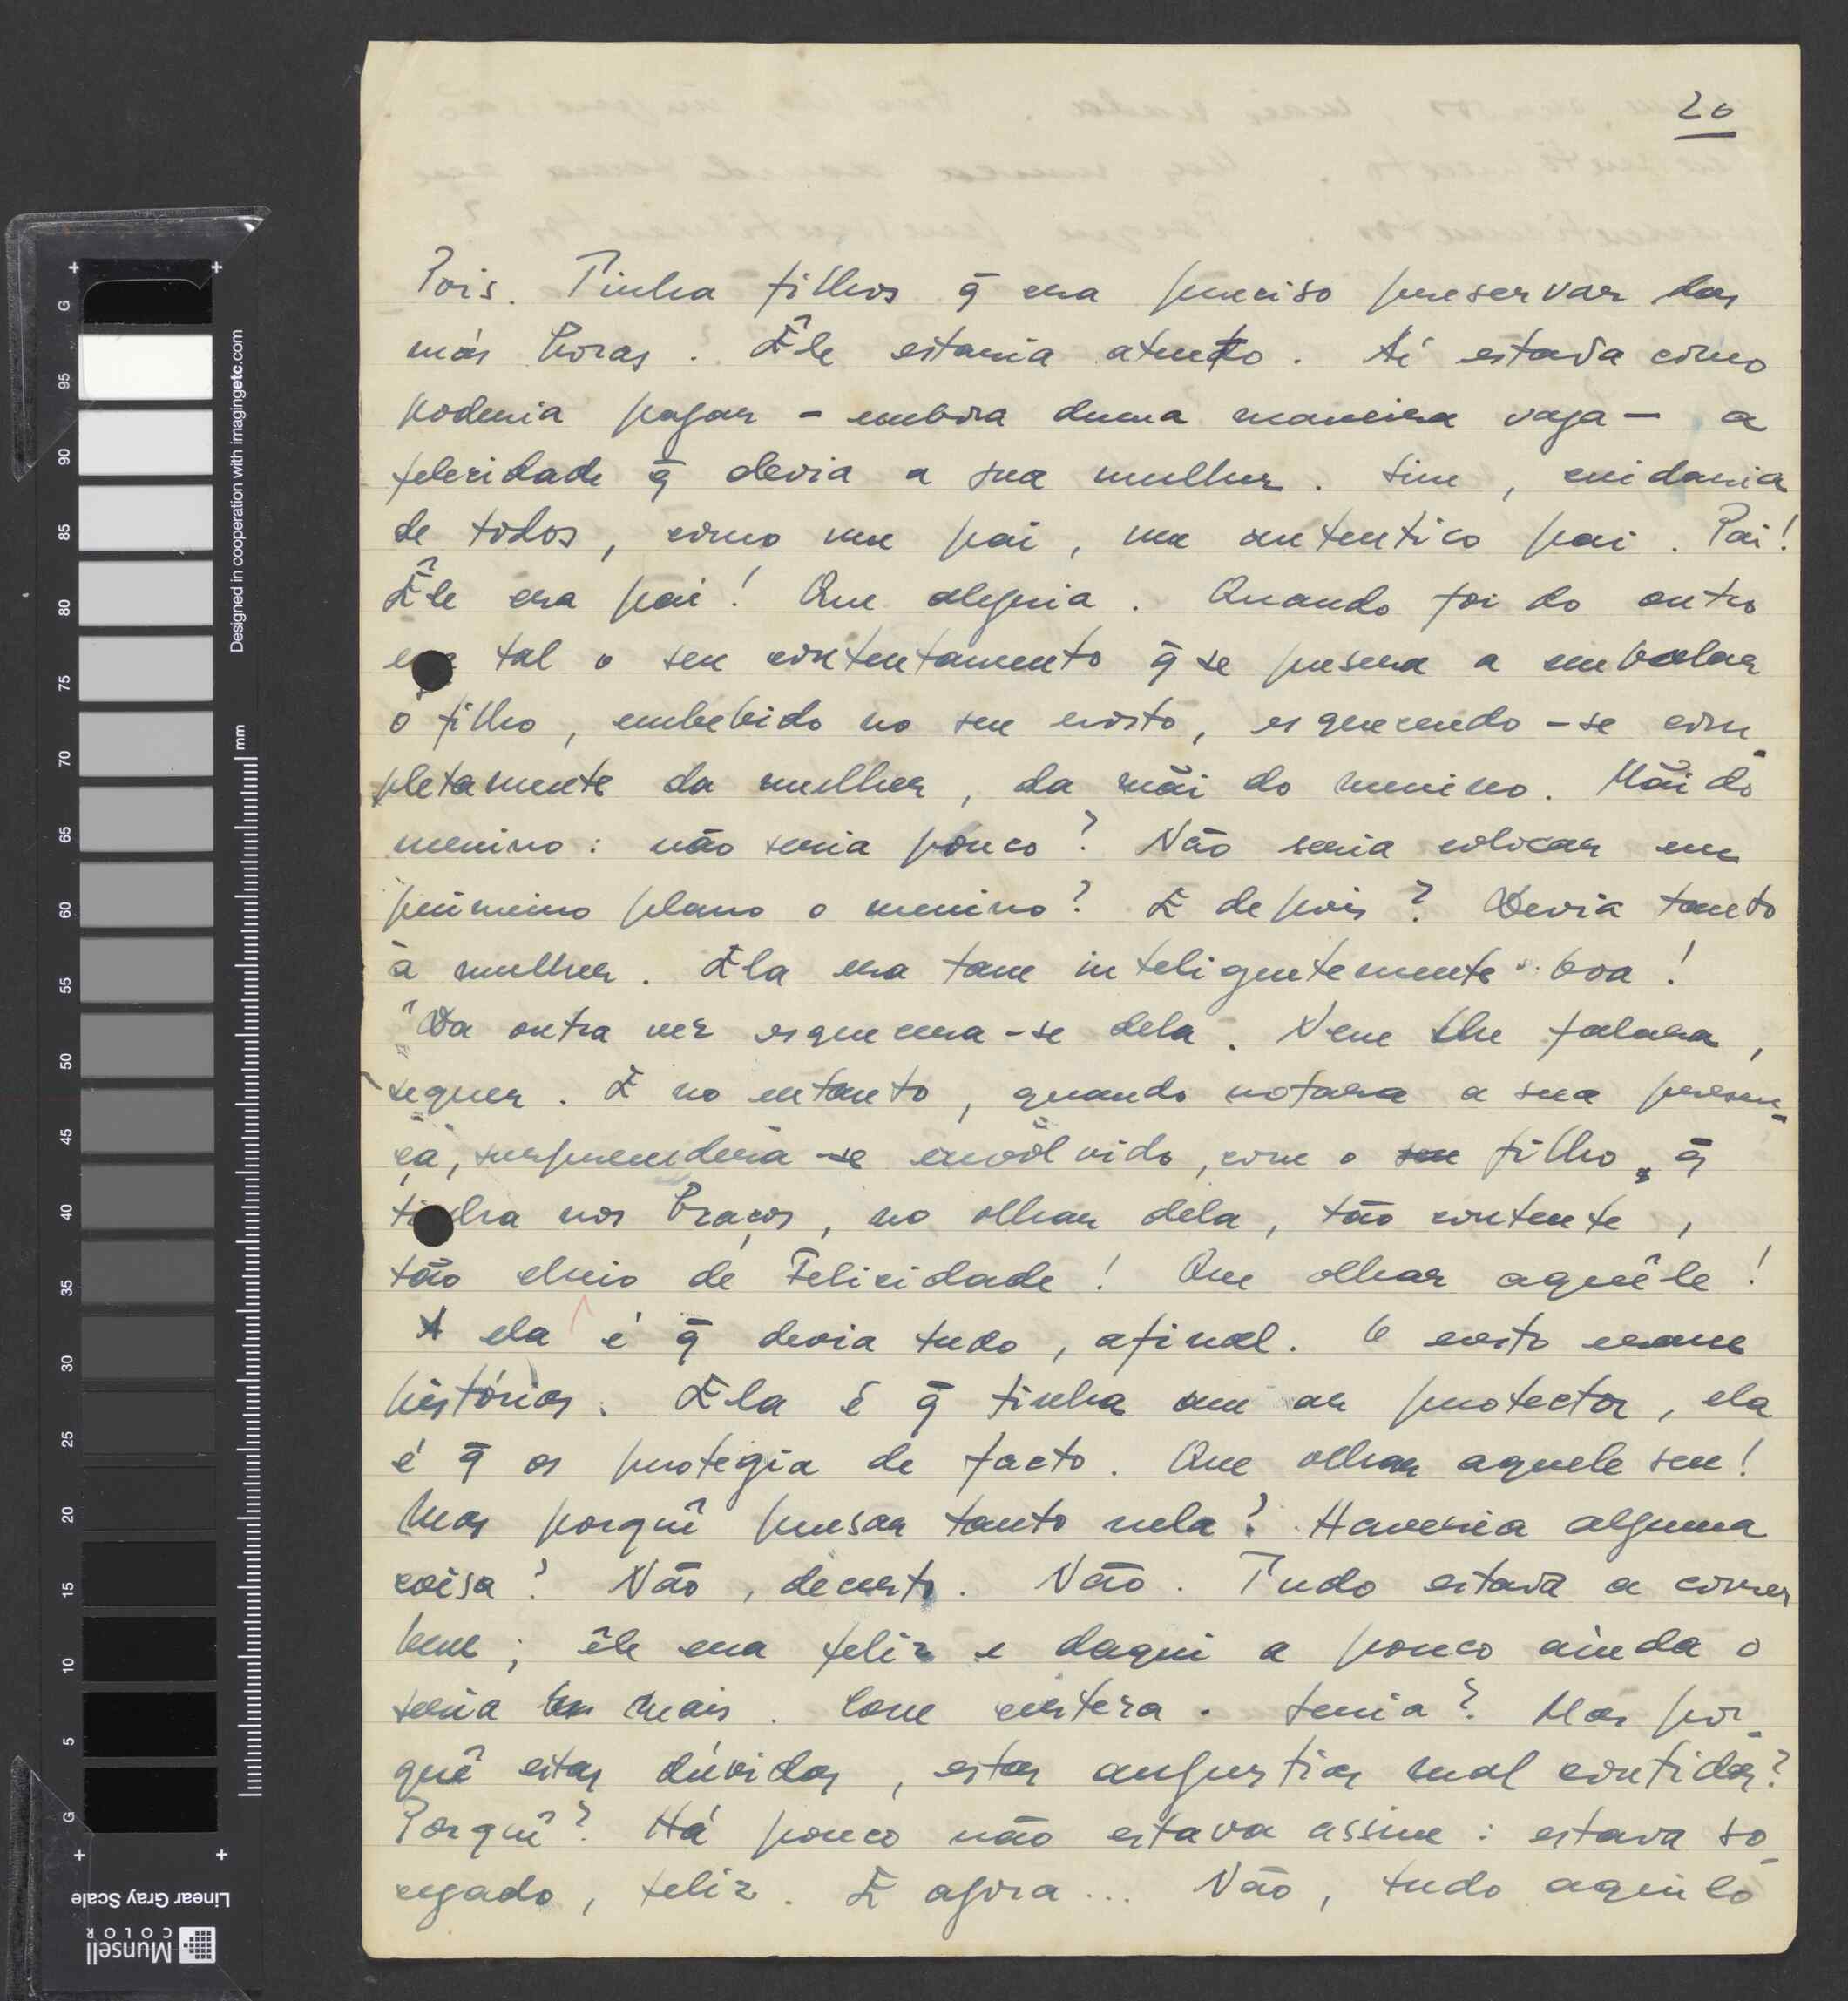 20
Pois. Tinha filhos q̃ era preciso preservar das
más horas. Êle estaria atento. Aí estava como
poderia pagar – embora duma maneira vaga – a
felicidade q̃ devia a sua mulher. Sim, cuidaria
de todos, como um pai, um autentico pai. Pai!
Êle era pai! Que alegria. Quando foi do outro
era tal o seu contentamento q̃ se pusera a embalar
o filho, embebido no seu rosto, esquecendo-se com-
pletamente da mulher, da mãi do menino. Mãi do
menino: não seria pouco? Não seria colocar em
primeiro plano o menino? E depois? Devia tanto
à mulher. Ela era tam inteligentemente boa!
Da outra vez esquecera-se dela. Nem lhe falara,
sequer. E no entanto, quando notara a sua presen-
ça, surpreendera-se envolvido, com o seu filho, q̃
tinha nos braços, no olhar dela, tão contente,
tão cheio de Felicidade! Que olhar aquêle!
A ela é q̃ devia tudo, afinal. O resto eram
histórias. Ela é q̃ tinha um ar protector, ela
é q̃ os protegia de facto. Que olhar aquele seu!
Mas porquê pensar tanto nela? Haveria alguma
coisa? Não, decerto. Não. Tudo estava a correr
bem; êle era feliz e daqui a pouco ainda o
seria mais. Com certeza. Seria? Mas por-
quê estas dúvidas, estas angustias mal contidas?
Porquê? Há pouco não estava assim: estava so-
cegado, feliz. E agora... Não, tudo aquilo
Designed in cooperation with imagingetc.com
mm
G
95
90
85
80
75
70
65
60
55
50
45
40
35
30
25
20
15
10
5
G
Linear Gray Scale
Munsell
COLOR